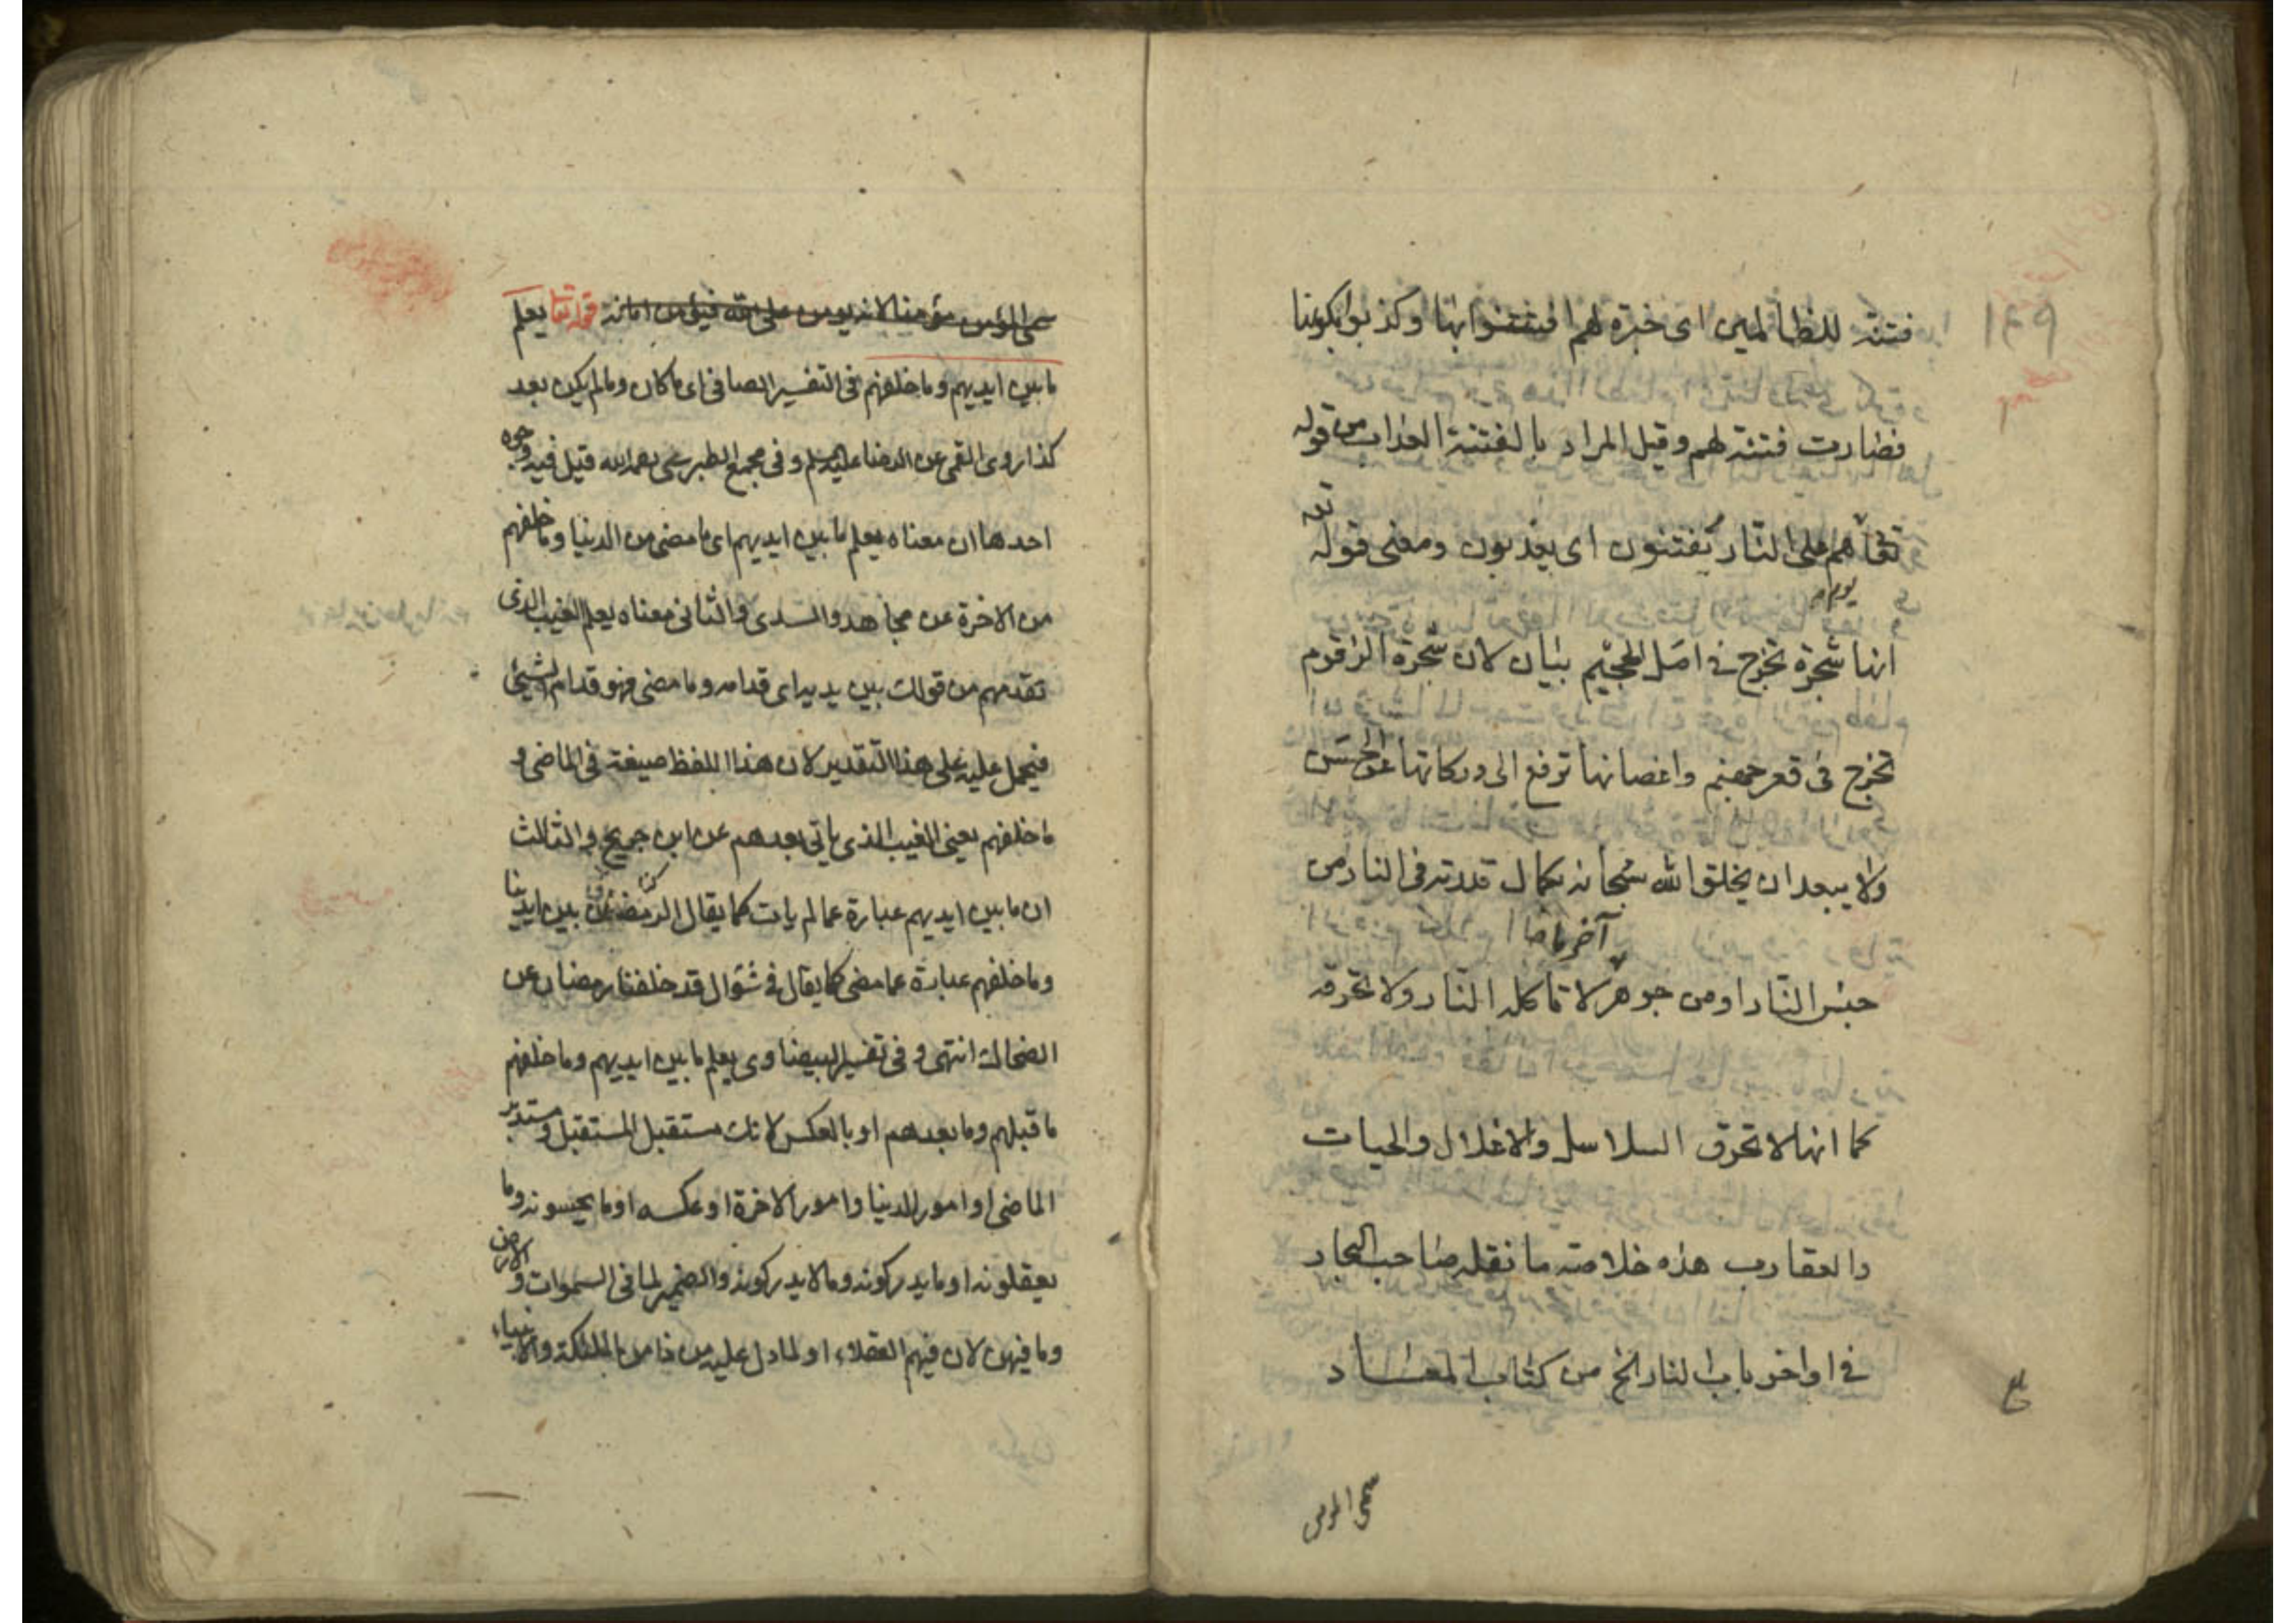 فتنة للظالمين اى خبرة لهم افتتنوا بها وكذبوا بكونها
فصارت فتنة لهم وقيل المراد بالفتنة العذاب من قوله
تعا هم على النار يفتنون اى يعذبون ومعنى قوله تعه
يوم
انها شجرة تخرج فى اصل الجحيم بيان لان شجرة الزقوم
تخرج فى قعر جهنم واغصانها ترفع الى دركاتها عن الحسن
ولا يبعد ان يخلق الله سبحانه بكمال قدرته فى النار من
جنس النار او من جوهر لا تاكله النار ولا تحرقه
كما انها لا تحرق السلاسل والاغلال والحيات
والعقارب هذه خلاصة ما نقله صاحب البحار
فى اواخر باب النار الخ من كتاب المعاد
سمى المومن
سمى المؤمن مؤمنا لانه يومن على الله فيؤمن امانه قوله تعا يعلم
ما بين ايديهم وما خلفهم فى التفسير الصافى اى ما كان وما لم يكن بعد
كذا روى القمى عن الرضا عليه السلم وفى مجمع الطبرسى رحمه الله قيل فيه وجوه
احدها ان معناه يعلم ما بين ايديهم اى ما مضى من الدنيا وما خلفهم
من الاخرة عن مجاهد والسدى والثانى معناه يعلم الغيب الذى
تقدمهم من قولك بين يديه اى قدامه وما مضى فهو قدام الشيئ
فيحمل عليه على هذا التقدير لان هذا اللفظ صيغة فى الماضى و
ما خلفهم يعنى الغيب الذى ياتى بعدهم عن ابن جريح والثالث
ان ما بين ايديهم عبارة عما لم يات كما يقال رمضان بين ايدينا
وما خلفهم عبارة عما مضى كما يقال فى شوال قد خلفنا رمضان عن
الضحاك انتهى و فى تفسير البيضاوى يعلم ما بين ايديهم وما خلفهم
ما قبلهم وما بعدهم او بالعكس لانك مستقبل المستقبل ومستدبر
الماضى او امور الدنيا وامور الاخرة او عكسه او ما يحسونه وما
يعقلونه او ما يدركونه وما لا يدركونه والضمير لما فى السموات و الارض
وما فيهن لان فيهم العقلاء او لما دل عليه من ذا من الملئكة والانبياء